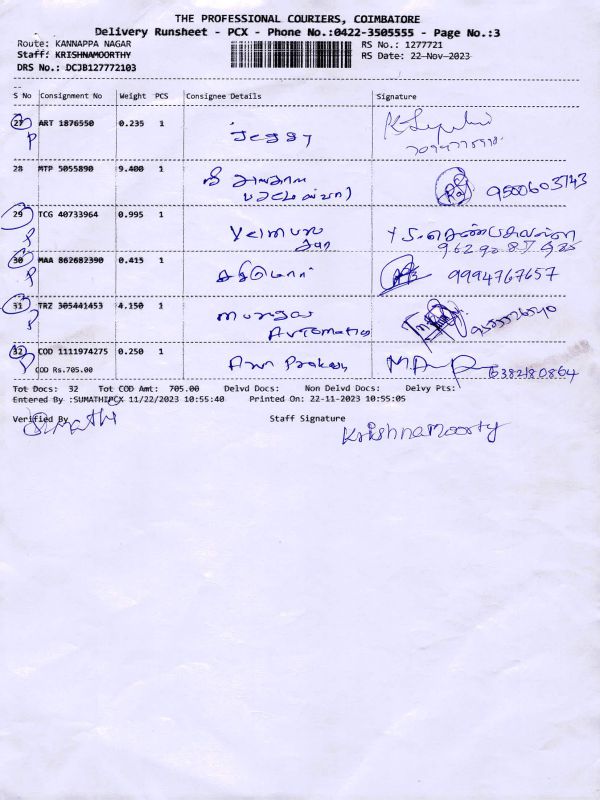 THE PROFESSIONAL COURIERS, COIMBATORE
Delivery Runsheet - PCX - Phone No.:0422-3505555 - Page No.:3
Route: KANNAPPA NAGAR RS No.: 1277721
Staff: KRISHNAMOORTHY RS Date: 22-Nov-2023
DRS No.: DCJB127772103
S No Consignment No Weight PCS Consignee Details Signature
27 ART 1876550 0.235 1 Jeggy
P
28 MTP 5055890 9.400 1 ஸ்ரீ 9500603743
29 TCG 40733964 0.995 1 Velmurugan
P
30 MAA 862682390 0.415 1 சக்திமோகன் 9994767657
P
31 TRZ 305441453 4.150 1 Murgan
P Automatic
32 COD 1111974275 0.250 1 Arun Prakash 6382180864
P COD Rs.705.00
Tot Docs: 32 Tot COD Amt: 705.00 Delvd Docs: Non Delvd Docs: Delvy Pts:
Entered By :SUMATHIPCX 11/22/2023 10:55:40 Printed On: 22-11-2023 10:55:05
Verified By Staff Signature
Sumathi Krishnamoorty